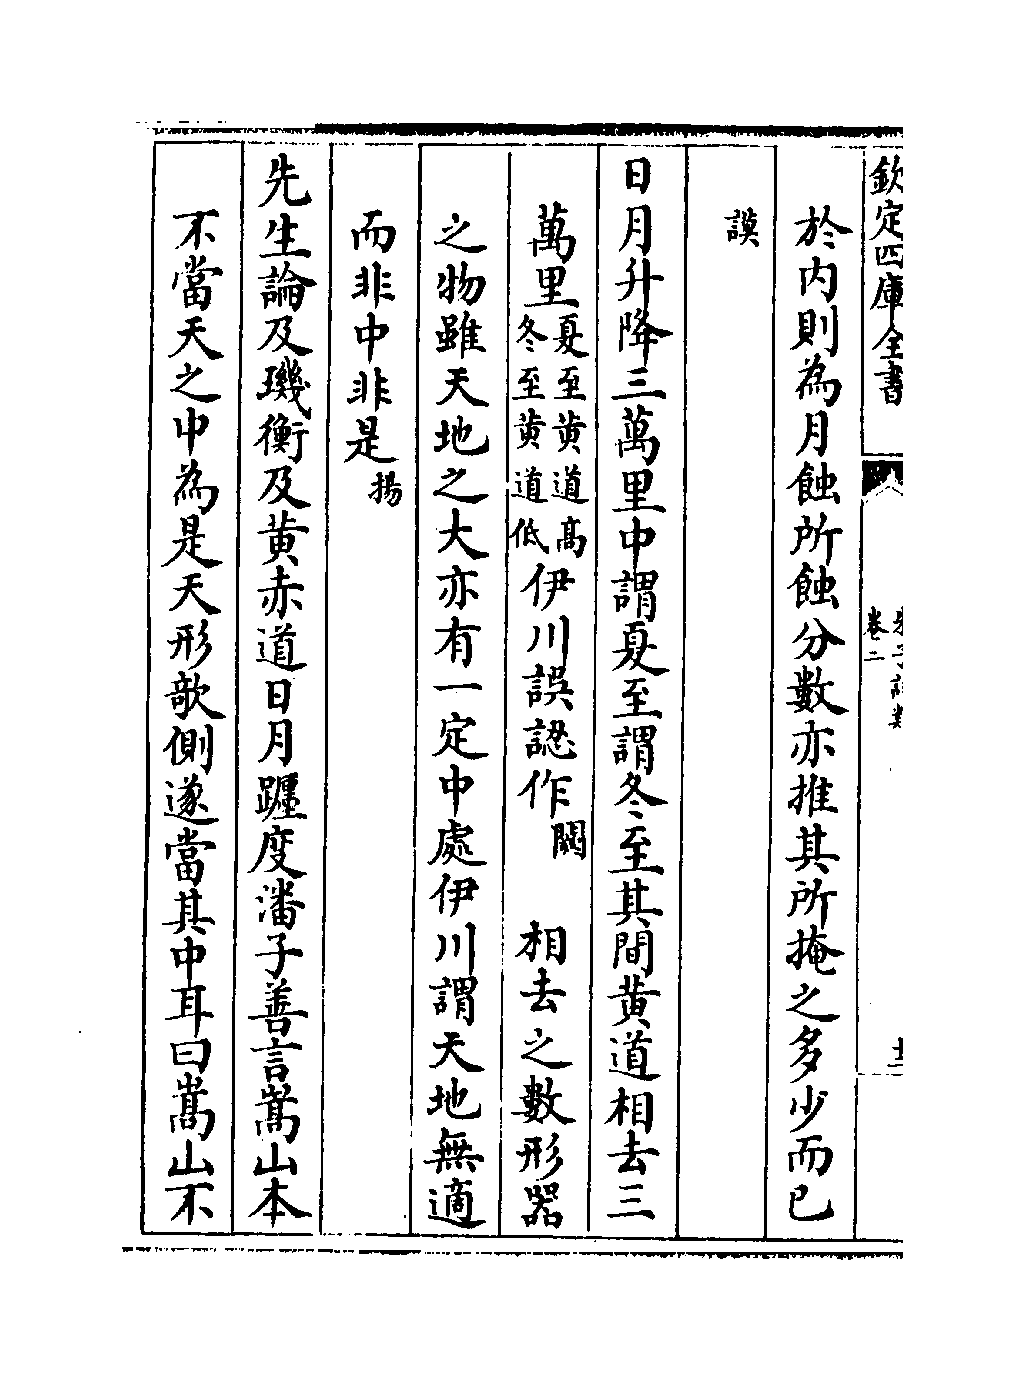 欽定四庫全書
卷二
於内則為月蝕所蝕分數亦推其所掩之多少而已
謨
日月升降三萬里中謂夏至謂冬至其間黄道相去三
萬里夏至黄道高冬至黄道低伊川誤認作闕 相去之數形器
之物雖天地之大亦有一定中處伊川謂天地無適
而非中非是揚
先生論及璣衡及黄赤道日月躔度潘子善言嵩山本
不當天之中為是天形欹側遂當其中耳曰嵩山不